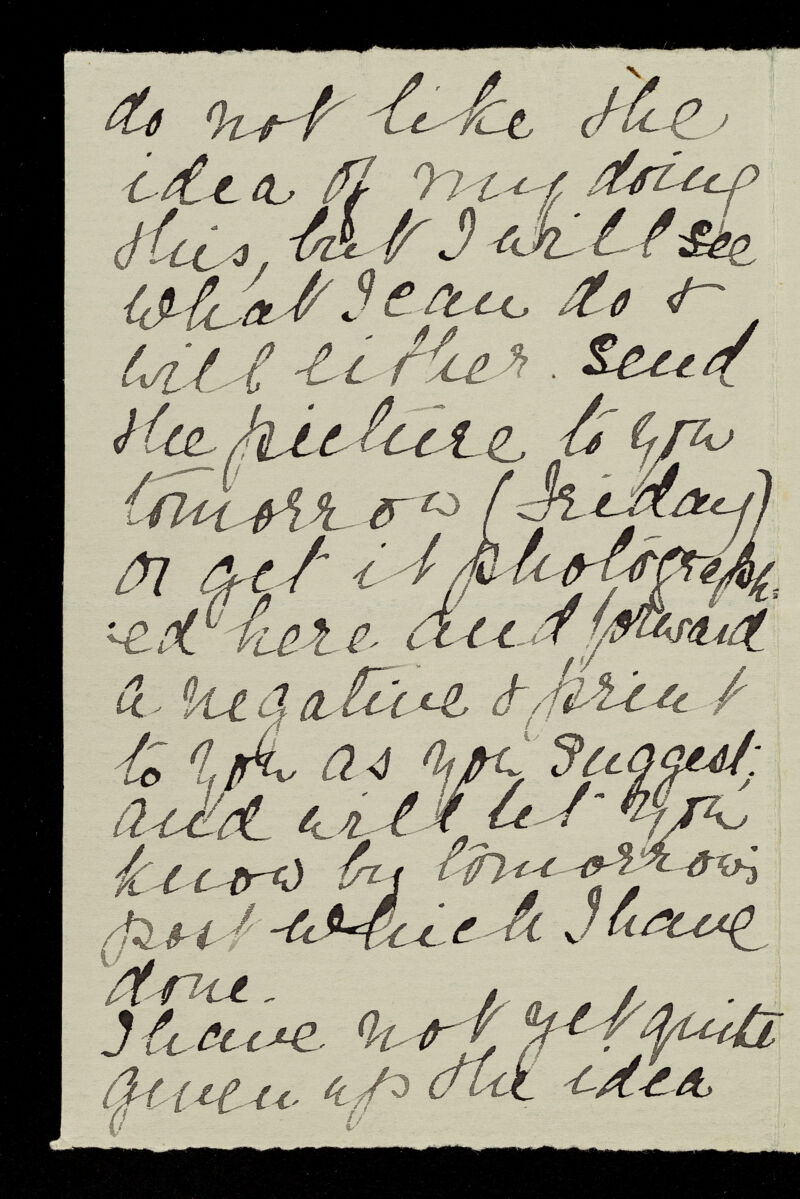 do not like the
idea of my doing
this, but I will see
what I can do &
will either send
the picture to you
tomorrow (Friday)
or get it photograph=
=ed here and forward
a negative & print
to you as you suggest;
and will let you
know by tomorrow's
post which I have
done.
I have not yet quite
given up the idea